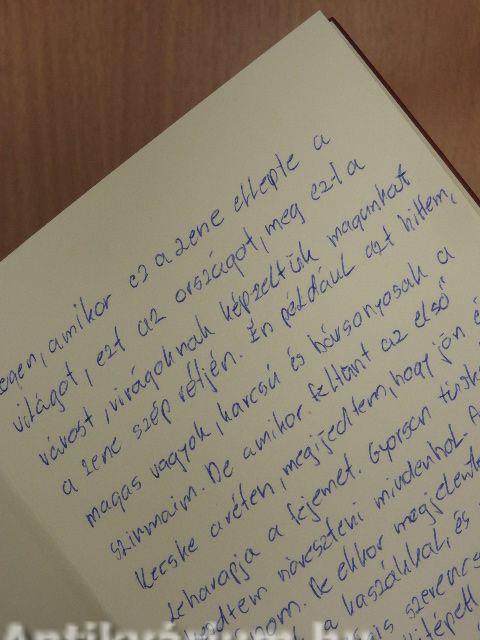 egen, amikor ez a zene ellepte a
világot, ezt az országot, meg ezt a
várost, virágoknak képzeltük magunkat
a zene szép rétjén. Én például azt hittem,
magas vagyok, karcsú és bársonyosak a
szirmaim. De amikor feltűnt az első
kecske a réten, megijedtem, hogy jön é
leharapja a fejemet. Gyorsan tüské
dtem növeszteni mindenhol. A
nom. De ekkor megjelente
a kaszákkal, és
is szerencs
kilépett
Antikvárium.hu